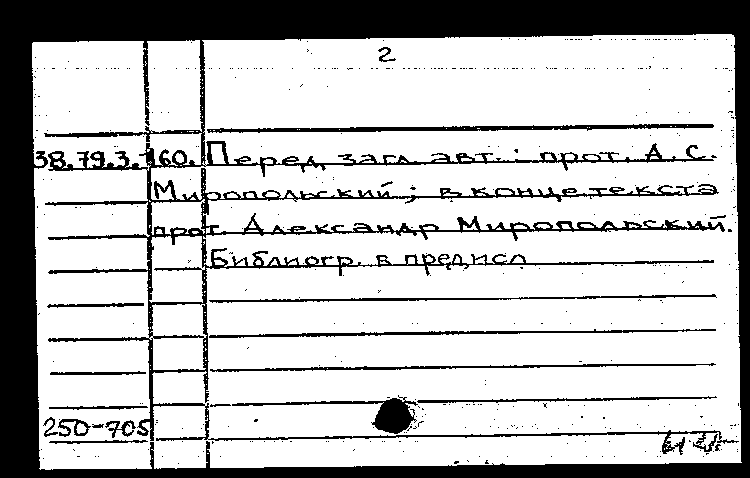 2
38.79.3.160. Перед загл. авт.: прот. А. С.
Миропольский; в конце текста
прот. Александр Миропольский.
Библиогр. в предисл
250-705